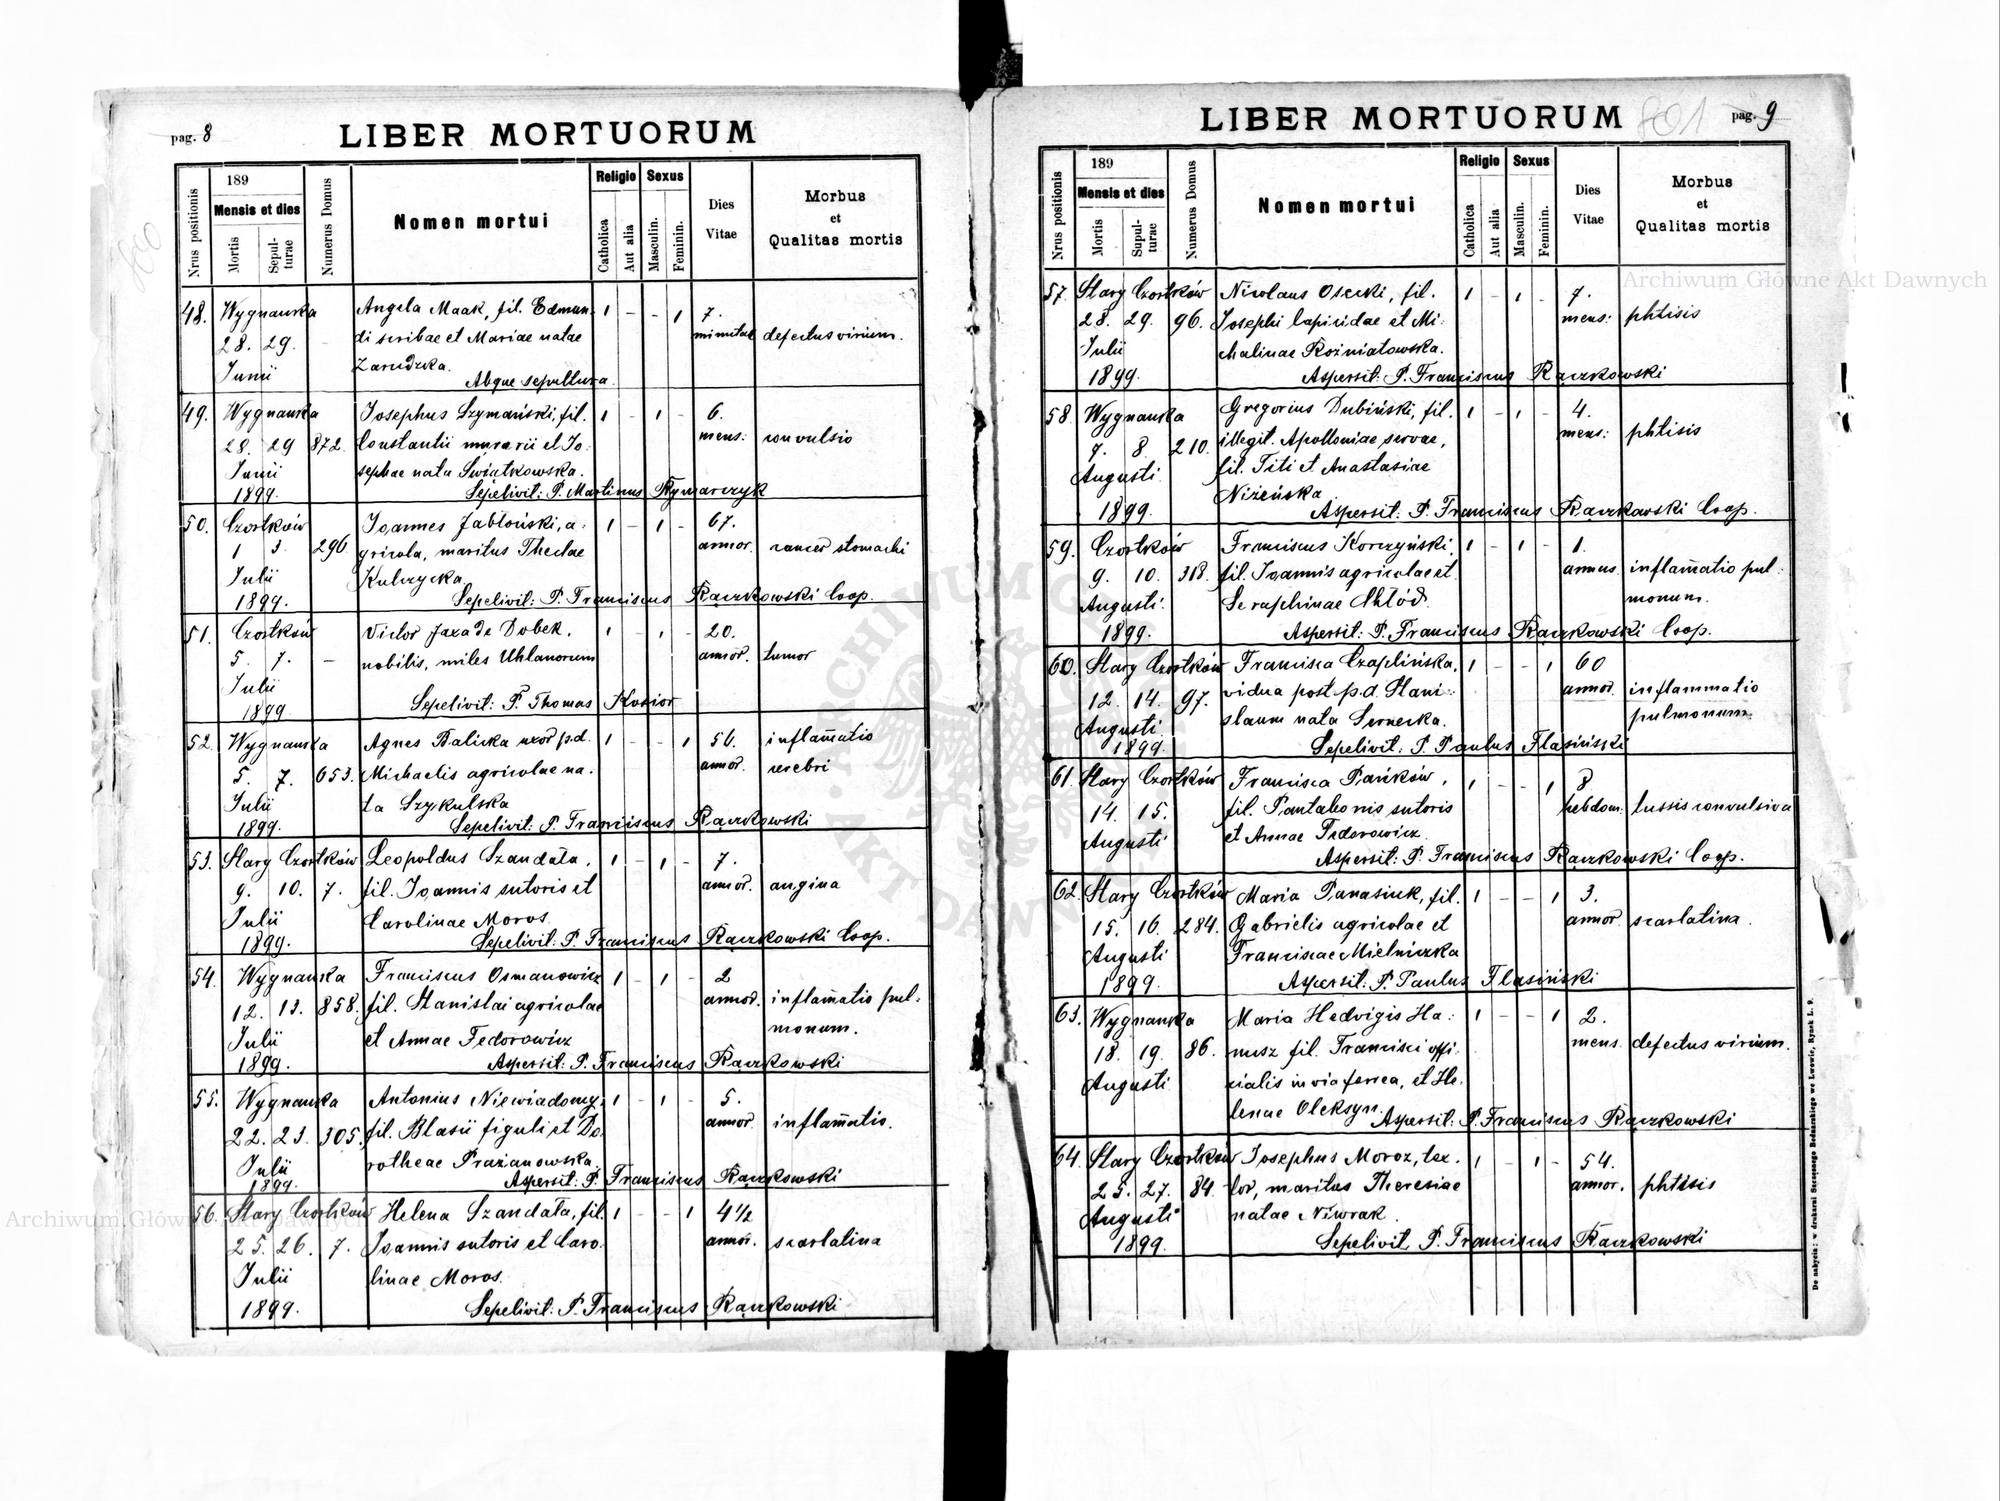 pag. 8
LIBER MORTUORUM
Nrus positionis
189
Mensis et dies
Mortis
Sepul-
turae
Numerus Domus
Nomen mortui
Religio
Catholica
Aut alia
Sexus
Masculin.
Feminin.
Dies
Vitae
Morbus
et
Qualitas mortis
48. Wygnanka Angela Maak, fil. Edmun- 1 - - 1 7.
28. 29. - di scribae et Mariae natae minutas defectus virium.
Junii Zarudzka.
Absque sepultura
49. Wygnanka Josephus Szymański, fil. 1 - 1 - 6.
28. 29 872. Constantii murarii et Jo- mens: convulsio
Junii sephae nata Świątkowska.
1899. Sepelivit: P. Martinus Rymarczyk
50. Czortków Joannes Jabłoński, a- 1 - 1 - 67.
1 3. 296. gricola, maritus Theclae annor. cancer stomachi
Julii Kulczycka
1899. Sepelivit: P. Franciscus Rączkowski Coop.
51. Czortków Victor Jaxa de Bobek, 1 - 1 - 20.
5. 7. - nobilis, miles Uhlanorum annor. tumor
Julii
1899 Sepelivit: P. Thomas Kosior
52. Wygnanka Agnes Balicka uxor p.d. 1 - - 1 56. inflam̄atio
5. 7. 653. Michaelis agricolae na- annor. cerebri
Julii ta Szykulska
1899. Sepelivit: P. Franciscus Rączkowski
53. Stary Czortków Leopoldus Szandała, 1 - 1 - 7.
9. 10. 7. fil. Joannis sutoris et annor. angina
Julii Carolinae Moros.
1899. Sepelivit: P. Franciscus Rączkowski Coop.
54. Wygnanka Franciscus Osmanowicz 1 - 1 - 2
12. 13. 858. fil. Stanislai agricolae annor. inflam̄atio pul-
Julii et Annae Fedorowicz monum.
1899. Aspersit: P. Franciscus Rączkowski
55. Wygnanka Antonius Niewiadomy, 1 - 1 - 5.
22. 23. 305. fil. Blasii figuli et Do- annor. inflam̄atio.
Julii rotheae Prażanowska.
1899. Aspersit: P. Franciscus Rączkowski
56. Stary Czortków Helena Szandała, fil. 1 - - 1 4 1/2
25. 26. 7. Joannis sutoris et Caro- annor. scarlatina
Julii linae Moros.
1899. Sepelivit: P. Franciscus Rączkowski
pag. 9
LIBER MORTUORUM
801
Nrus positionis
189
Mensis et dies
Mortis
Supul-
turae
Numerus Domus
Nomen mortui
Religio
Catholica
Aut alia
Sexus
Masculin.
Feminin.
Dies
Vitae
Morbus
et
Qualitas mortis
57. Stary Czortków Nicolaus Osecki, fil. 1 - 1 - 7.
28. 29. 96. Josephi lapicidae et Mi- mens: phtisis
Julii chalinae Rożniatowska.
1899. Aspersit: P. Franciscus Rączkowski
58. Wygnanka Gregorius Dubiński, fil. 1 - 1 - 4.
7. 8. 210. illegit. Apolloniae servae, mens: phtisis
Augusti fil. Titi et Anastasiae
Niżeńska
1899. Aspersit: P. Franciscus Rączkowski Coop.
59. Czortków Franciscus Korczyński, 1 - 1 - 1.
9. 10. 318. fil. Joannis agricolae et annus. inflam̄atio pul-
Augusti Seraphinae Chłód. monum.
1899. Aspersit: P. Franciscus Rączkowski Coop.
60. Stary Czortków Francisca Czaplińska, 1 - - 1 60
12. 14. 97. vidua post p.d. Stani- annor. inflammatio
Augusti slaum nata Sernecka. pulmonum.
1899. Sepelivit: P. Paulus Flasiński
61. Stary Czortków Francisca Pańków, 1 - - 1 8
14. 15. fil. Pantaleonis sutoris hebdom: tussis convulsiva
Augusti et Annae Fedorowicz.
Aspersit: P. Franciscus Rączkowski Coop.
62. Stary Czortków Maria Panasiuk, fil. 1 - - 1 3.
15. 16. 284. Gabrielis agricolae et annor. scarlatina.
Augusti Franciscae Mielniczka
1899. Aspersit: P. Paulus Flasiński
63. Wygnanka Maria Hedvigis Ha- 1 - - 1 2.
18. 19. 86. nusz fil. Francisci offi- mens. defectus virium.
Augusti cialis in via ferrea, et He-
lenae Oleksyn. Aspersit: P. Franciscus Rączkowski
64. Stary Czortków Josephus Moroz, tex- 1 - 1 - 54.
25. 27. 84. tor, maritus Theresiae annor. phtisis
Augusti natae Niwrak.
1899. Sepelivit P. Franciscus Rączkowski
De nabycia: w drukarni Szczęsnego Bednarskiego we Lwowie, Rynek L. 9.
Archiwum Główne Akt Dawnych
Archiwum Główne Akt Dawnych